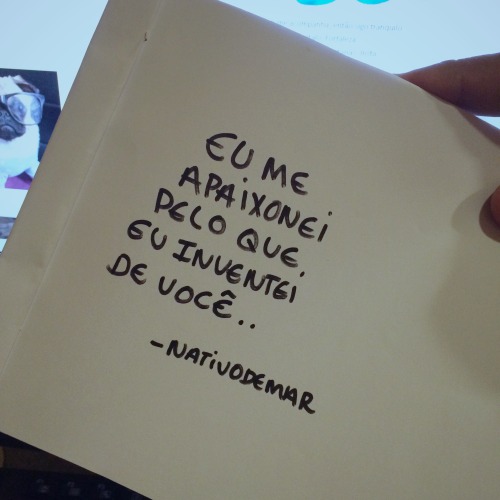 EU ME
APAiXONEi
PELO QUE,
EU INVENTEI
DE VOCÊ..
-NATiVODEMAR